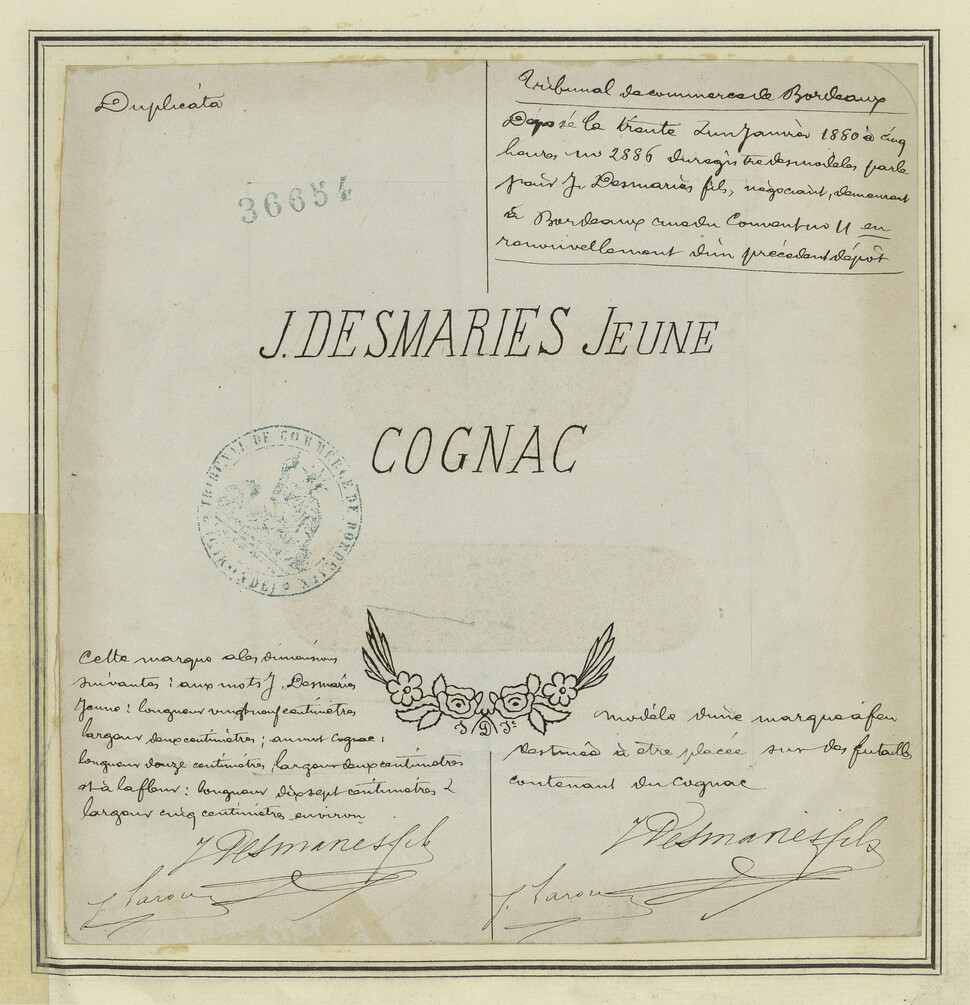 Duplicata
Tribunal de commerce de Bordeaux
Déposé le trente un Janvier 1880 à cinq
heures no 2886 du registre des modèles par le
sieur J. Desmaries fils, négociant, demeurant
à Bordeaux rue du Couvent no 11 en
renouvellement d'un précédent dépôt
36654
J. DESMARIES JEUNE
COGNAC
TRIBUNAL DE COMMERCE DE BORDEAUX
(GIRONDE)
Cette marque a les dimensions
suivantes : aux mots J. Desmaries
Jeune : longueur vingt neuf centimètres
largeur deux centimètres ; au mot Cognac :
longueur douze centimètres, largeur deux centimètres
et à la fleur : longueur dix sept centimètres &
largeur cinq centimètres environ
J D Je
modèle d'une marque à feu
destinée à être placée sur des futailles
contenant du Cognac
J Desmaries fils
J Desmaries fils